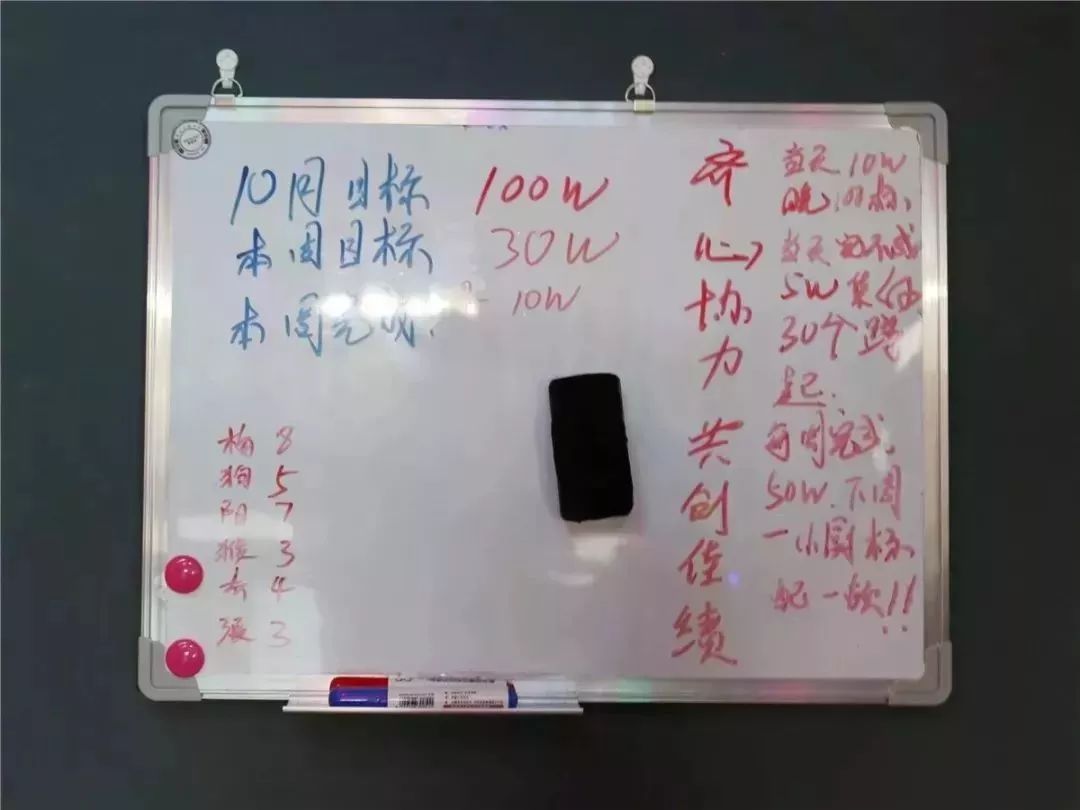 10月目标 100W
本周目标 30W
本周完成: 10W
梅 8
狗 5
阳 7
猴 3
4
张 3
齐心协力共创佳绩
当天10W
晚
当天 不成
5W 集体
30个蹲
起.
每周完成
50W.下周
一小厨标
配一顿!!